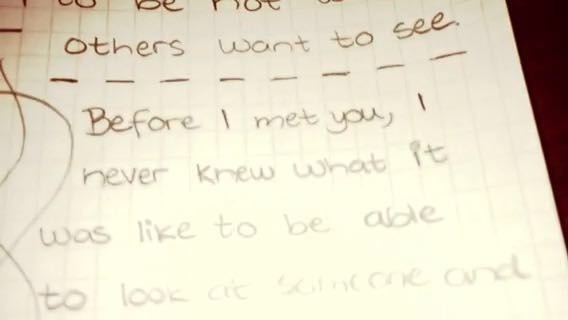 to be not a
others want to see.
Before I met you, I
never knew what it
was like to be able
to look at someone and